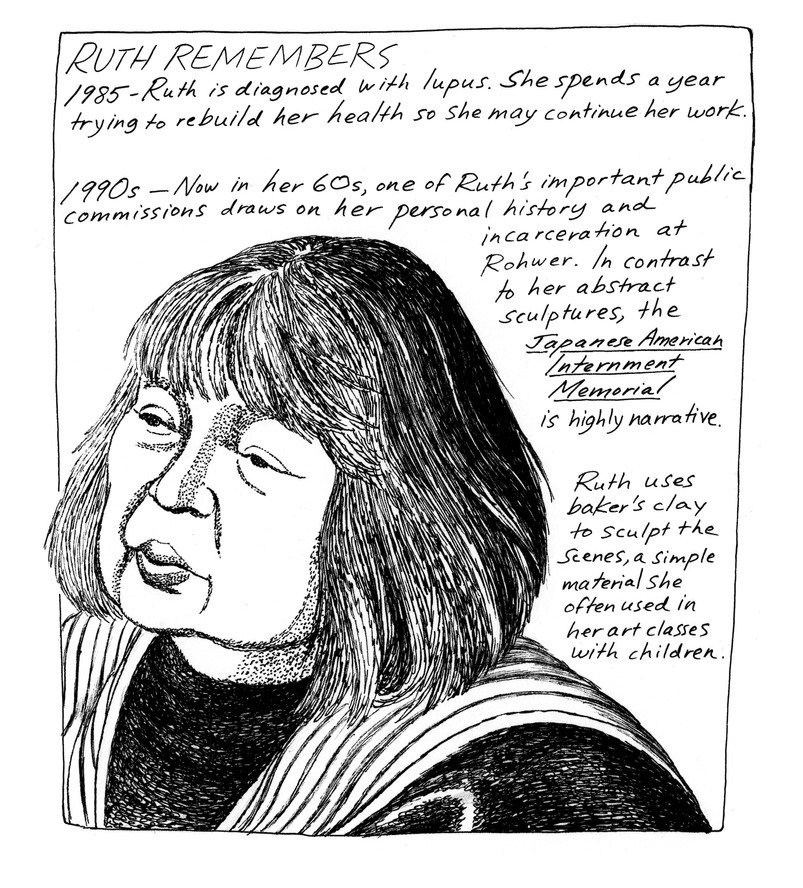 RUTH REMEMBERS
1985-Ruth is diagnosed with lupus. She spends a year
trying to rebuild her health so she may continue her work.
1990s — Now in her 60s, one of Ruth's important public
commissions draws on her personal history and
incarceration at
Rohwer. In contrast
to her abstract
sculptures, the
Japanese American
Internment
Memorial
is highly narrative.
Ruth uses
baker's clay
to sculpt the
scenes, a simple
material she
often used in
her art classes
with children.